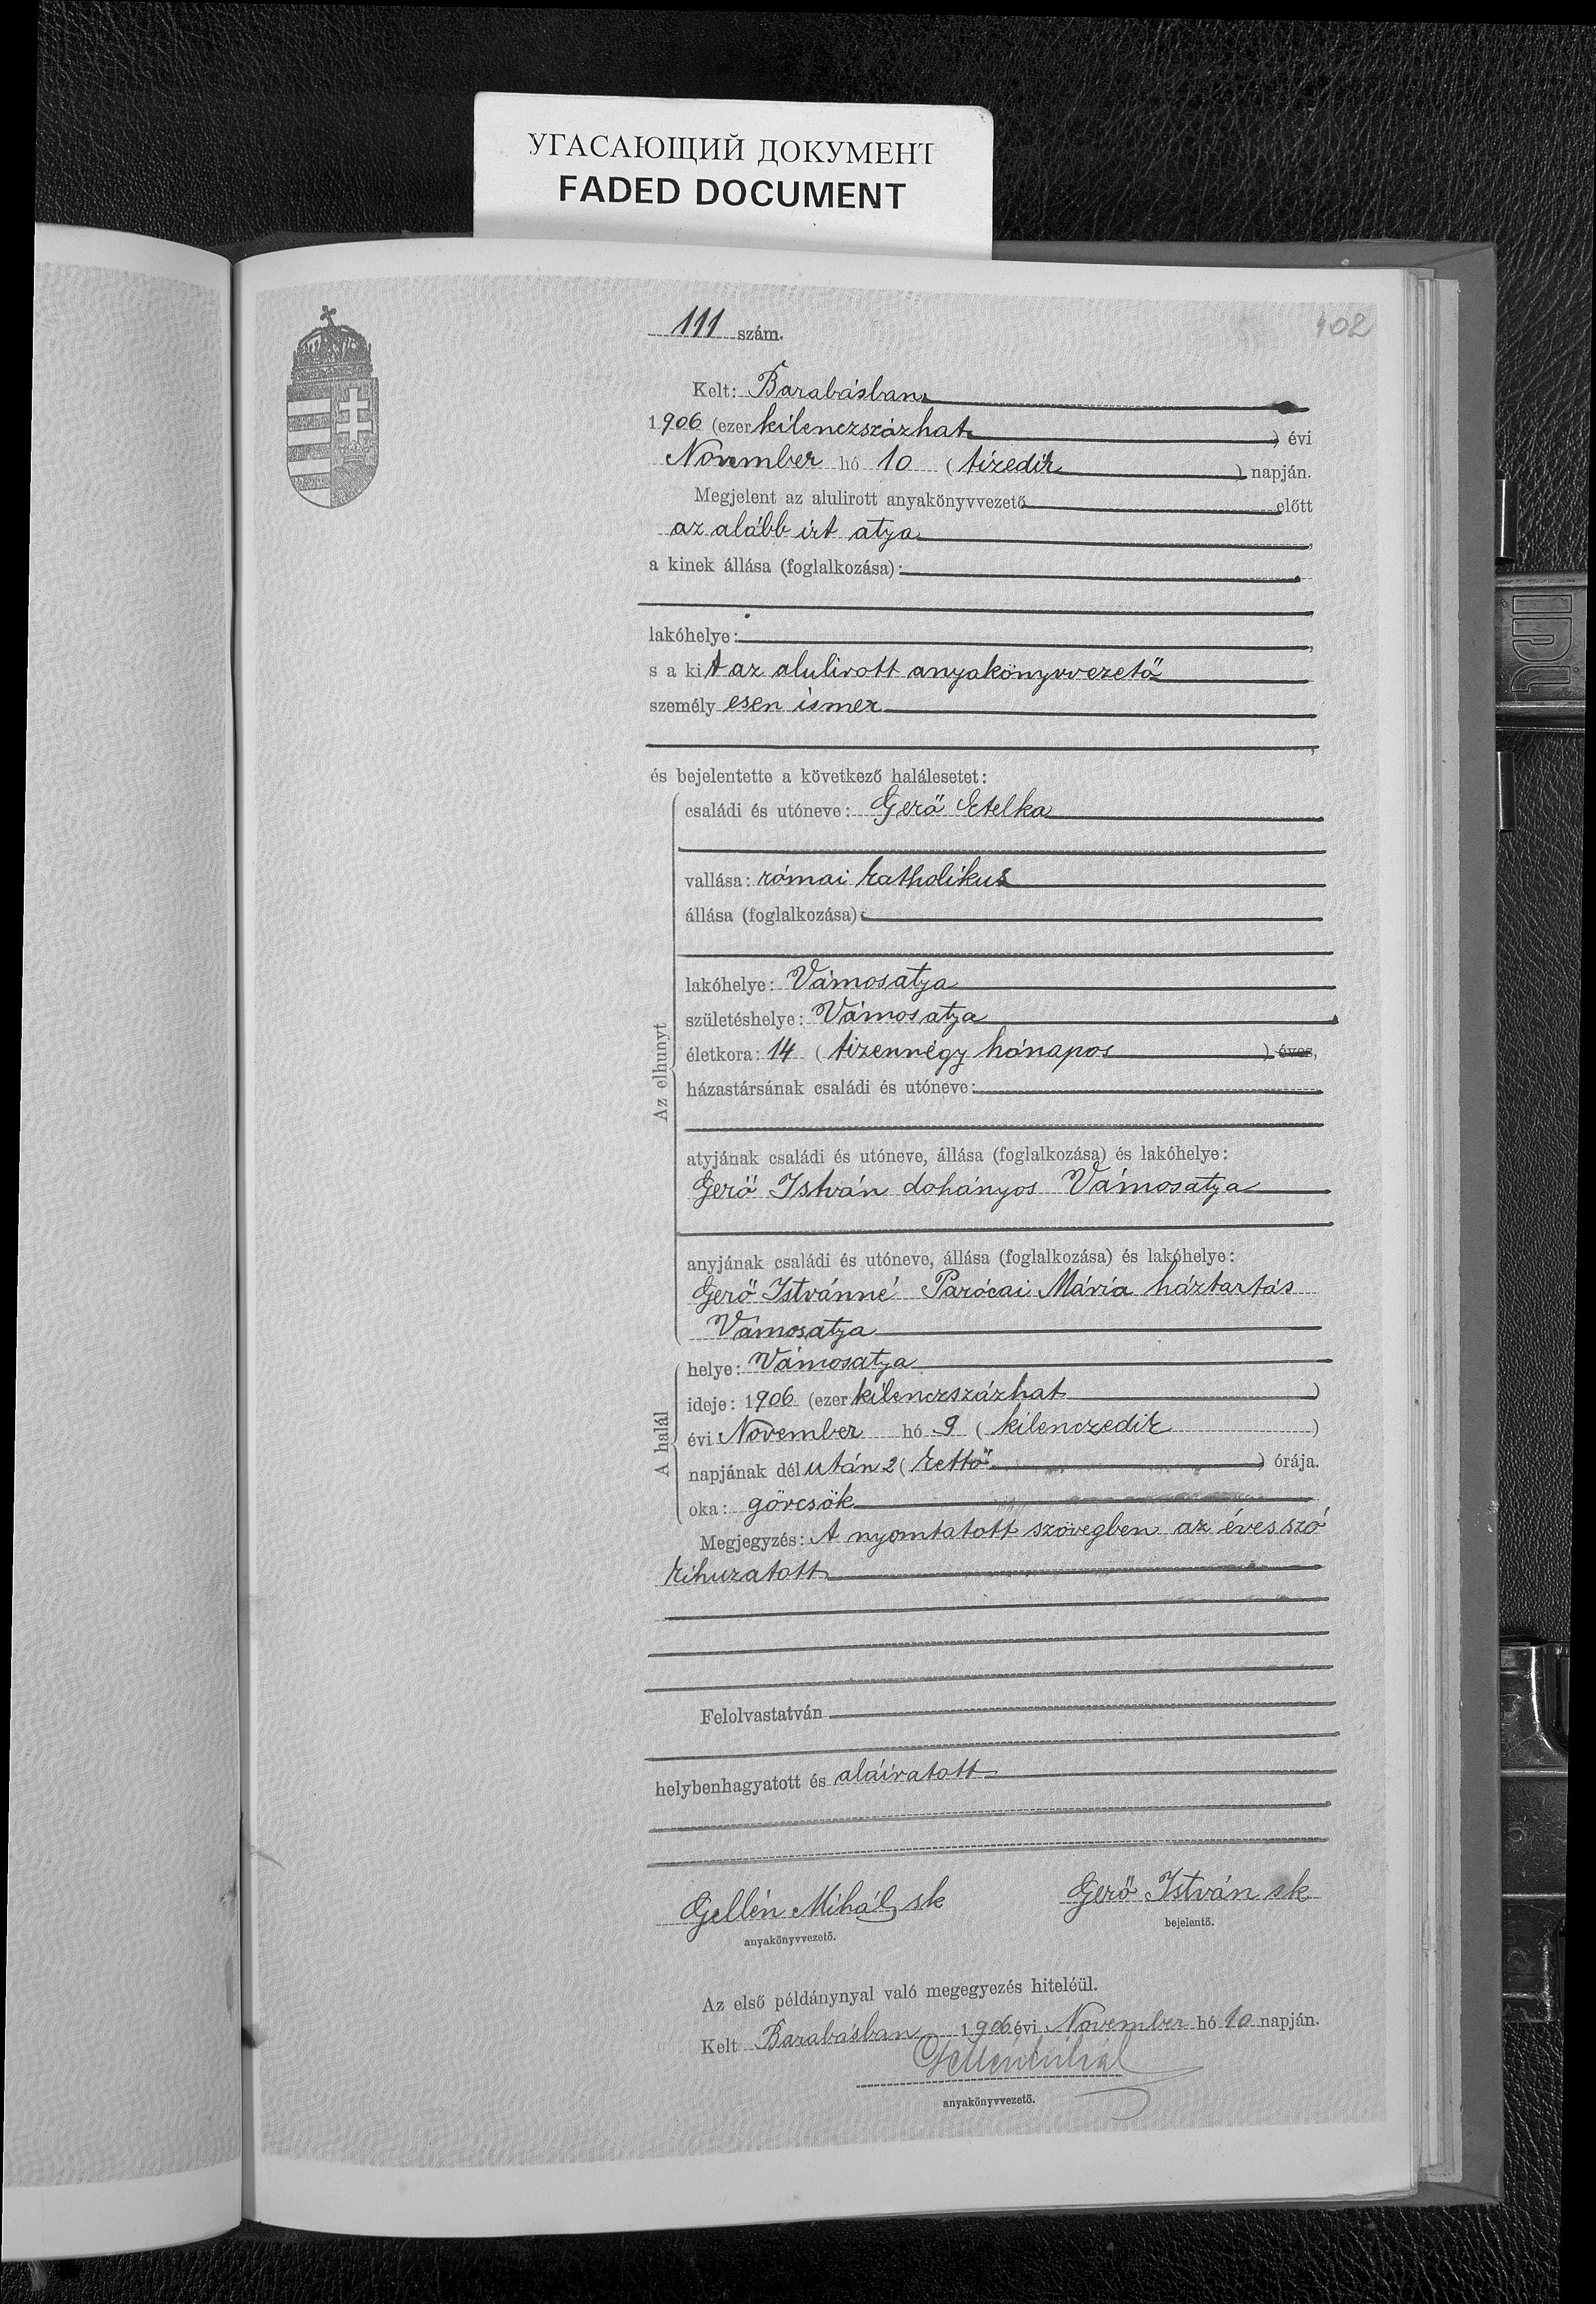 УГАСАЮЩИЙ ДОКУМЕНТ
FADED DOCUMENT
102
111 szám.
Kelt: Barabásban
1906 (ezer kilenczszázhat) évi
November hó 10 (tizedik) napján.
Megjelent az alulirott anyakönyvvezető előtt
az alább irt atya,
a kinek állása (foglalkozása):
lakóhelye:
s a kit az alulirott anyakönyvvezető
személyesen ismer
és bejelentette a következő halálesetet:
Az elhunyt
családi és utóneve: Gerő Etelka
vallása: római katholikus
állása (foglalkozása):
lakóhelye: Vámosatya
születéshelye: Vámosatya
életkora: 14 (tizennégy hónapos) éves,
házastársának családi és utóneve:
atyjának családi és utóneve, állása (foglalkozása) és lakóhelye:
Gerő István dohányos Vámosatya
anyjának családi és utóneve, állása (foglalkozása) és lakóhelye:
Gerő Istvánné Parócai Mária háztartás
Vámosatya
A halál
helye: Vámosatya
ideje: 1906 (ezer kilenczszázhat)
évi November hó 9 (kilenczedik)
napjának délután 2 (kettő) órája.
oka: görcsök
Megjegyzés: A nyomtatott szövegben az éves szó
kihuzatott
Felolvastatván
helybenhagyatott és aláiratott
Gellén Mihály sk
Gerő István sk
anyakönyvvezető.
bejelentő.
Az első példánynyal való megegyezés hiteléül.
Kelt Barabásban 1906 évi November hó 10 napján.
Gellén Mihál
anyakönyvvezető.